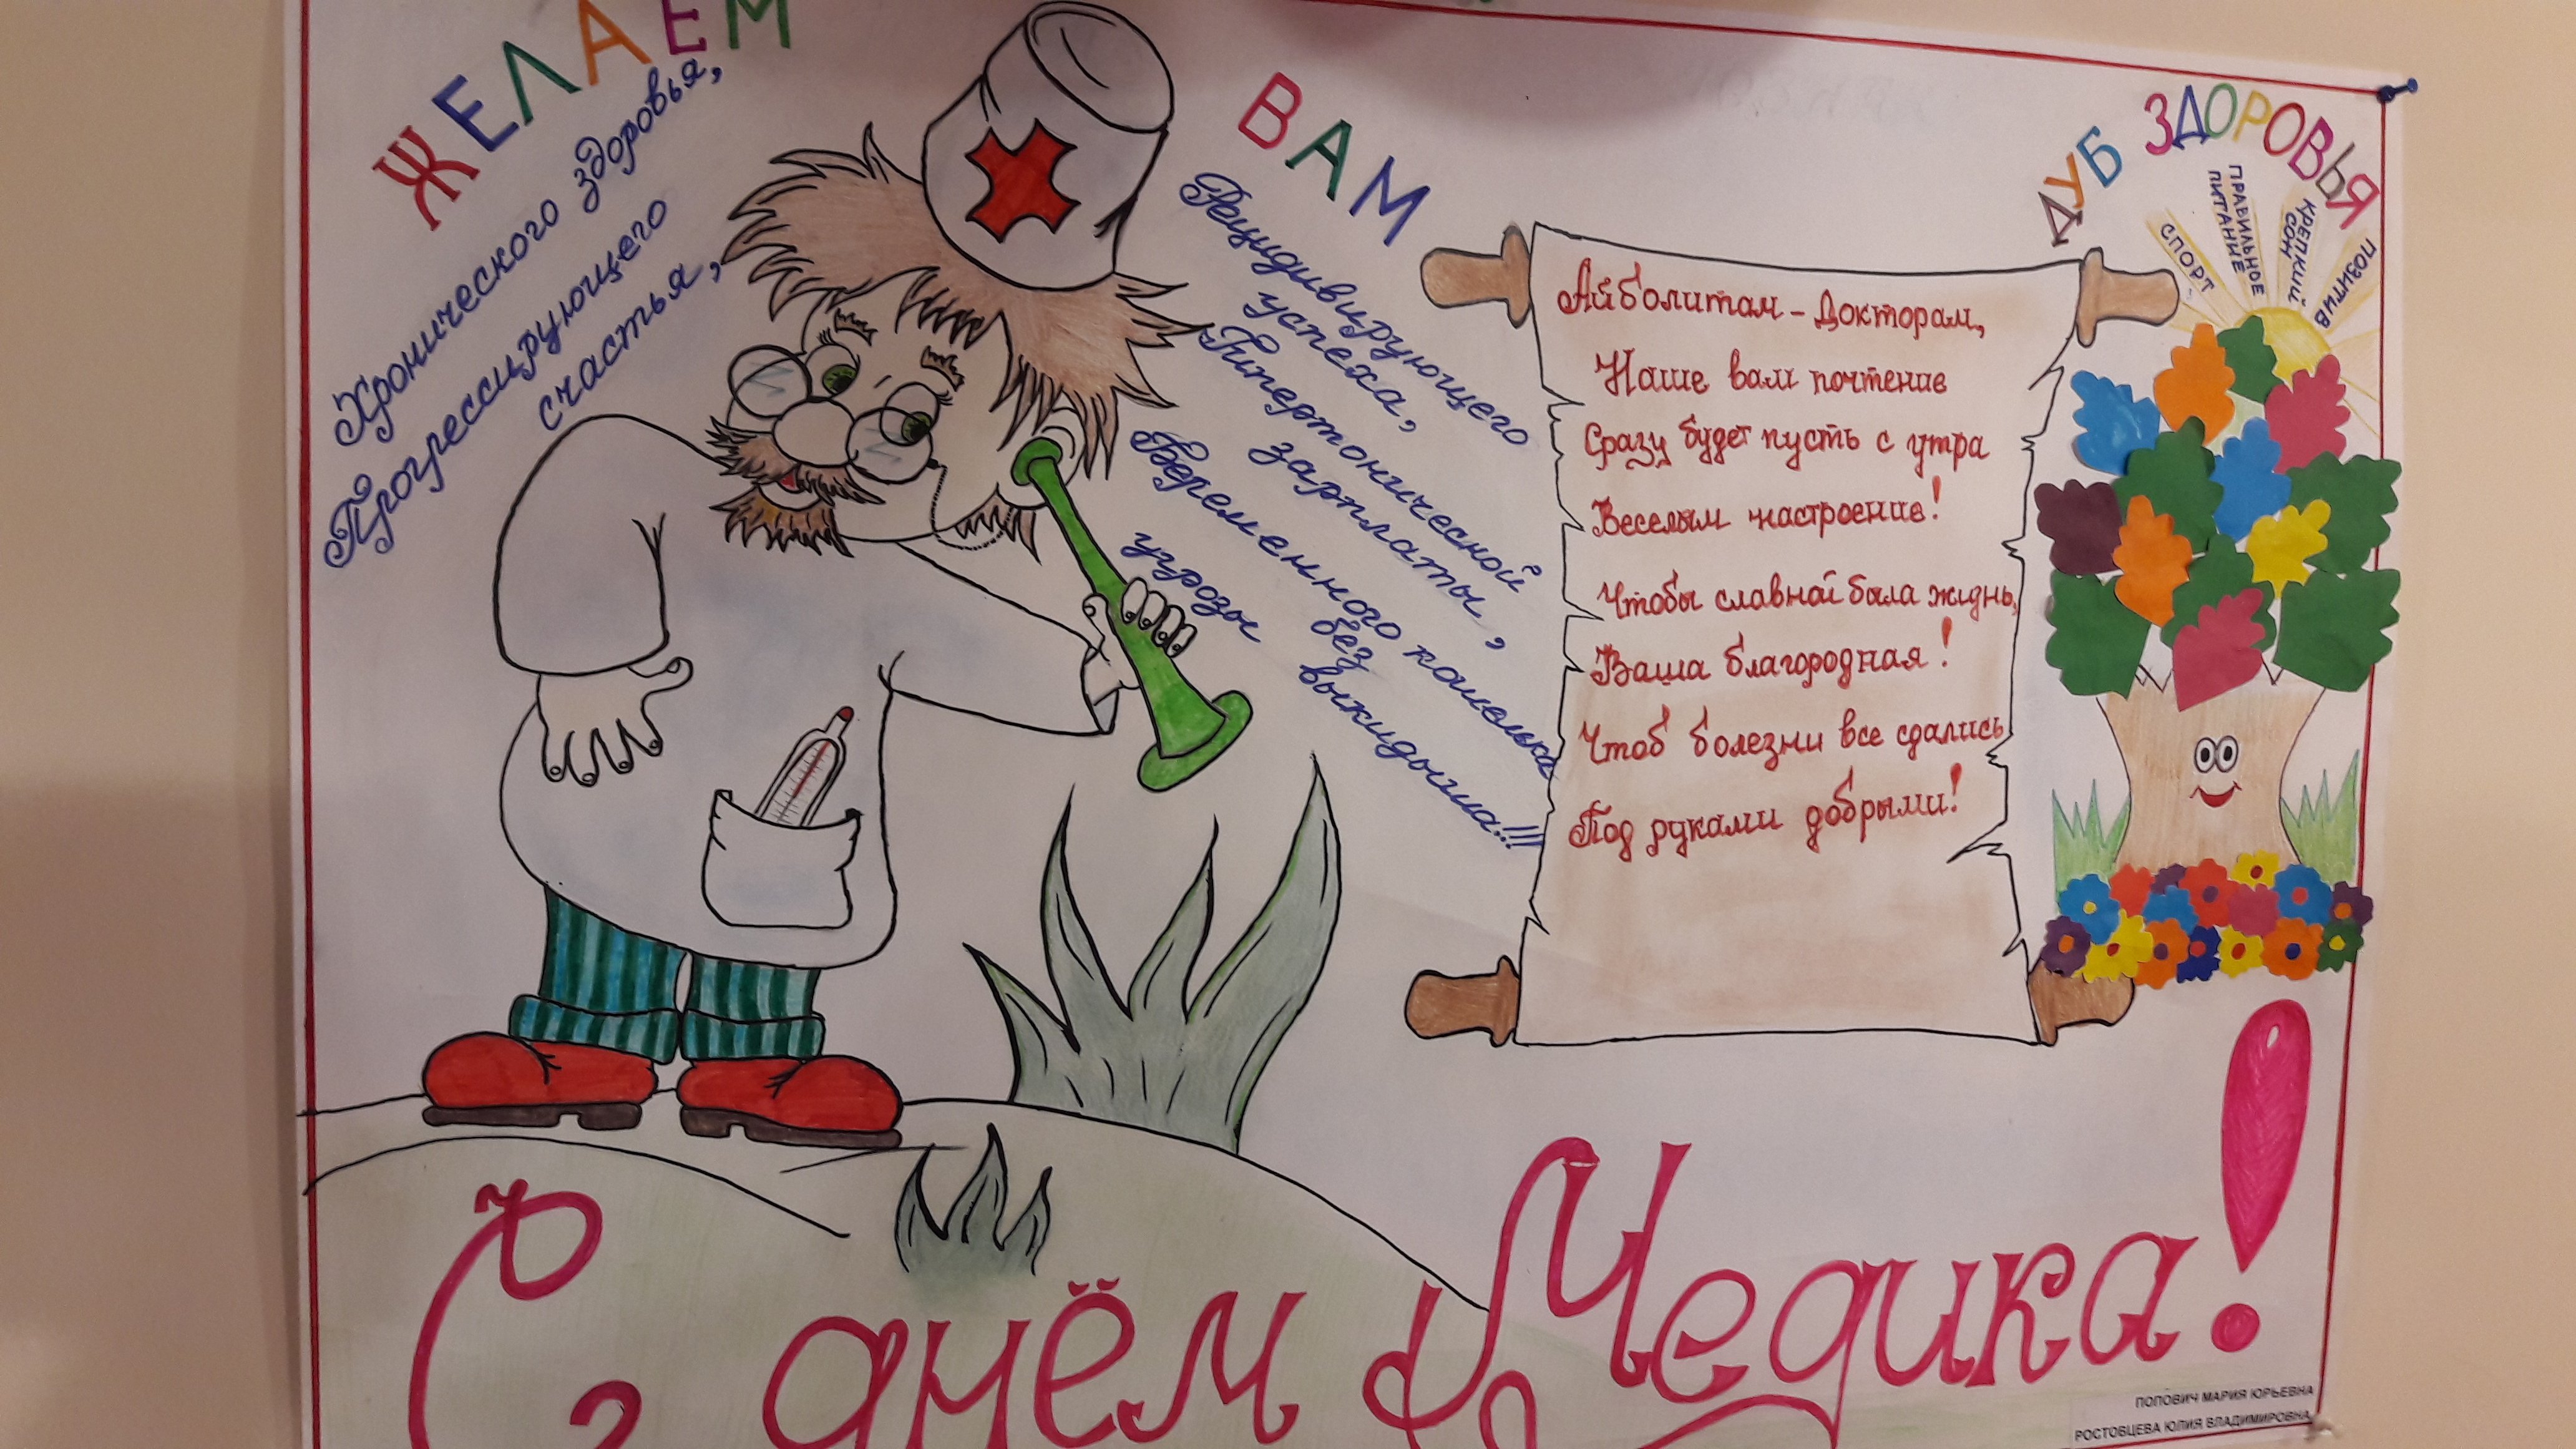 ЖЕЛАЕМ ВАМ
Хронического здоровья,
Прогрессирующего
счастья,
Рецидивирующего
успеха,
Гипертонической
зарплаты,
Беременного кошелька
без
угрозы выкидыша!!!
Айболитам - Докторам,
Наше вам почтение
Сразу будет пусть с утра
Веселым настроение!
Чтобы славной была жизнь,
Ваша благородная!
Чтоб болезни все сдались
Под руками добрыми!
ДУБ ЗДОРОВЬЯ
СПОРТ
ПРАВИЛЬНОЕ
ПИТАНИЕ
КРЕПКИЙ
СОН
ПОЗИТИВ
С днём Медика!
ПОПОВИЧ МАРИЯ ЮРЬЕВНА
РОСТОВЦЕВА ЮЛИЯ ВЛАДИМИРОВНА